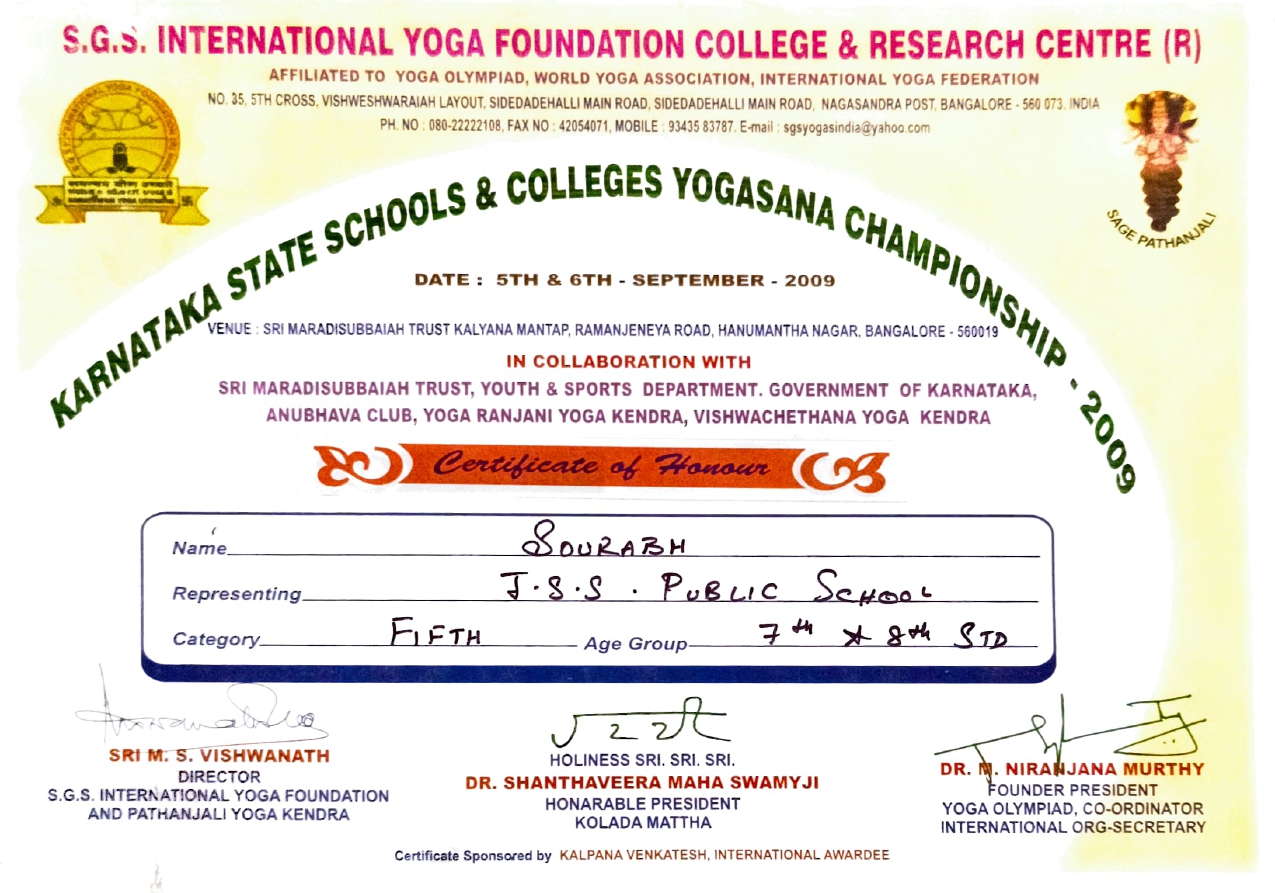 S.G.S. INTERNATIONAL YOGA FOUNDATION COLLEGE & RESEARCH CENTRE (R)
AFFILIATED TO YOGA OLYMPIAD, WORLD YOGA ASSOCIATION, INTERNATIONAL YOGA FEDERATION
NO. 35, 5TH CROSS, VISHWESHWARAIAH LAYOUT, SIDEDADEHALLI MAIN ROAD, SIDEDADEHALLI MAIN ROAD, NAGASANDRA POST, BANGALORE - 560 073. INDIA
PH. NO : 080-22222108, FAX NO : 42054071, MOBILE : 93435 83787. E-mail : sgsyogasindia@yahoo.com
SAGE PATHANJALI
KARNATAKA STATE SCHOOLS & COLLEGES YOGASANA CHAMPIONSHIP - 2009
DATE : 5TH & 6TH - SEPTEMBER - 2009
VENUE : SRI MARADISUBBAIAH TRUST KALYANA MANTAP, RAMANJENEYA ROAD, HANUMANTHA NAGAR, BANGALORE - 560019
IN COLLABORATION WITH
SRI MARADISUBBAIAH TRUST, YOUTH & SPORTS DEPARTMENT. GOVERNMENT OF KARNATAKA,
ANUBHAVA CLUB, YOGA RANJANI YOGA KENDRA, VISHWACHETHANA YOGA KENDRA
Certificate of Honour
Name SOURABH
Representing J.S.S. PUBLIC SCHOOL
Category FIFTH Age Group 7th & 8th STD
SRI M. S. VISHWANATH
DIRECTOR
S.G.S. INTERNATIONAL YOGA FOUNDATION
AND PATHANJALI YOGA KENDRA
HOLINESS SRI. SRI. SRI.
DR. SHANTHAVEERA MAHA SWAMYJI
HONARABLE PRESIDENT
KOLADA MATTHA
DR. N. NIRANJANA MURTHY
FOUNDER PRESIDENT
YOGA OLYMPIAD, CO-ORDINATOR
INTERNATIONAL ORG-SECRETARY
Certificate Sponsored by KALPANA VENKATESH, INTERNATIONAL AWARDEE